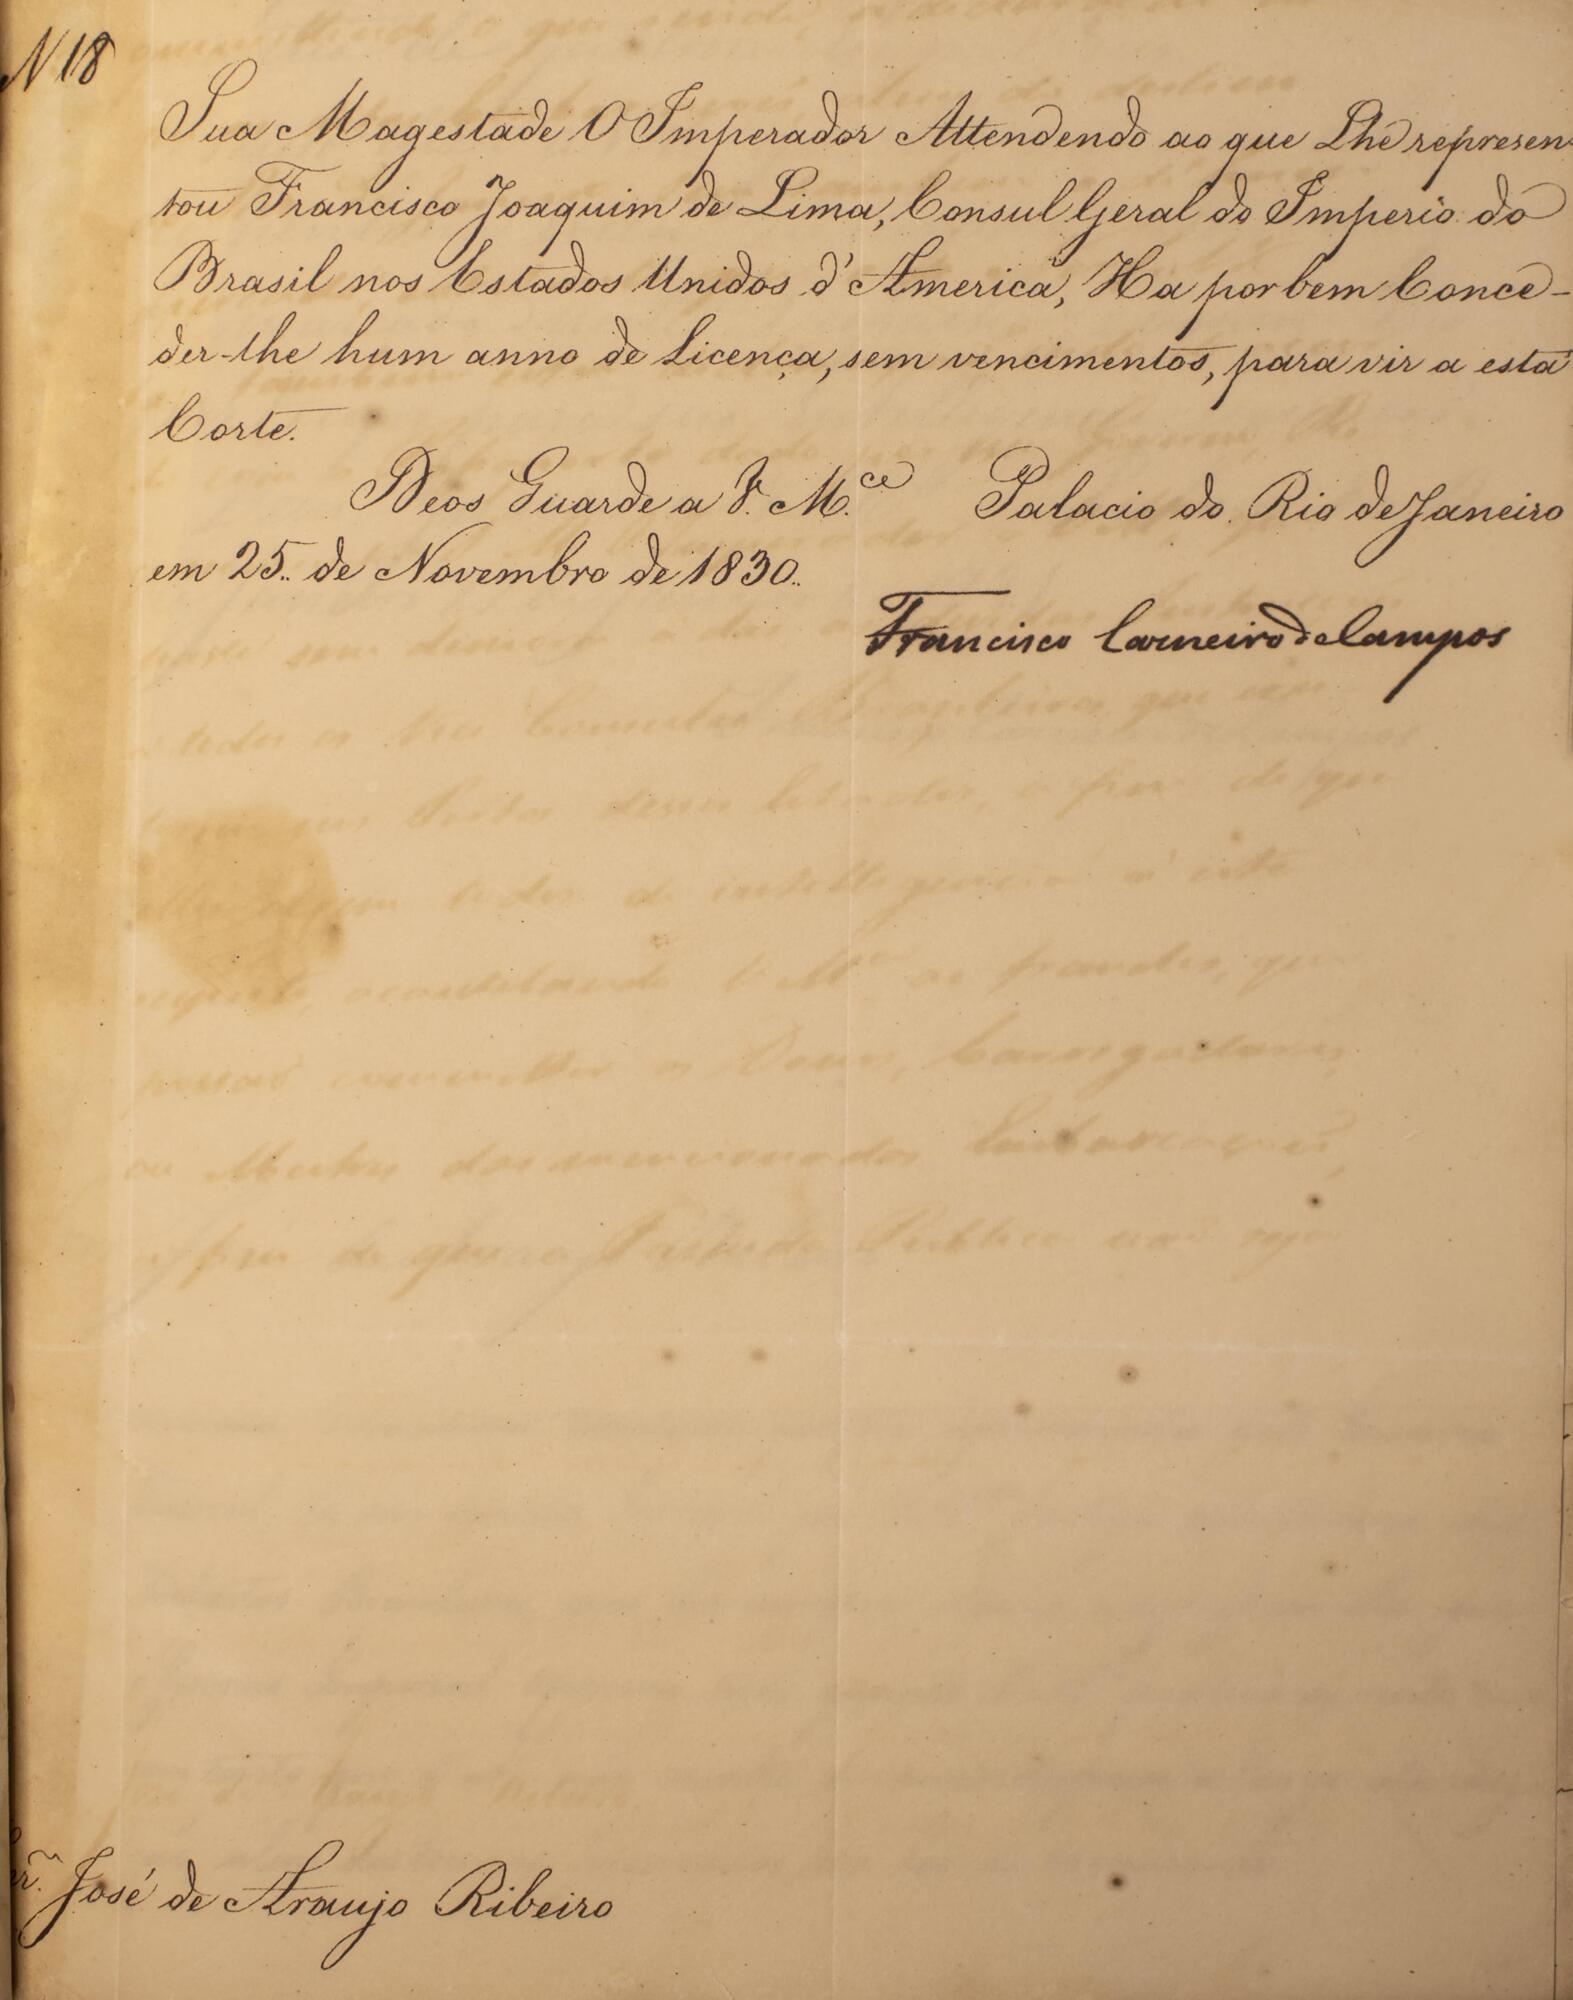 N 18
Sua Magestade O Imperador Attendendo ao que Lhe represen-
tou Francisco Joaquim de Lima, Consul Geral do Imperio do
Brasil nos Estados Unidos d'America, Ha por bem Conce-
der-lhe hum anno de Licença, sem vencimentos, para vir a esta
Corte.
Deos Guarde a V. M.ce Palacio do Rio de Janeiro
em 25.. de Novembro de 1830..
Francisco Carneiro de Campos
Sr. José de Araujo Ribeiro